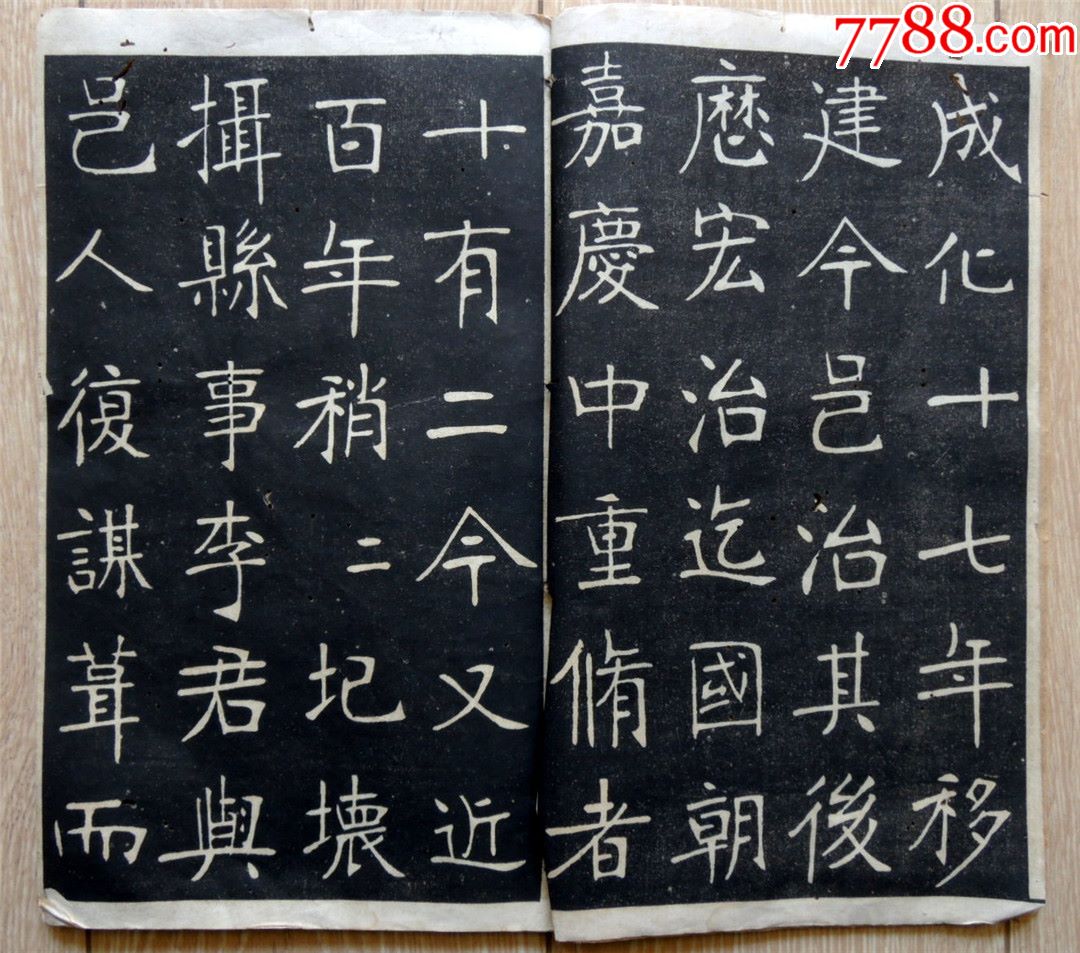 7788.com
成化十七年移
建今邑治其後
厯宏治迄國朝
嘉慶中重脩者
十有二今又近
百年稍二圮壞
攝縣事李君與
邑人復謀葺而